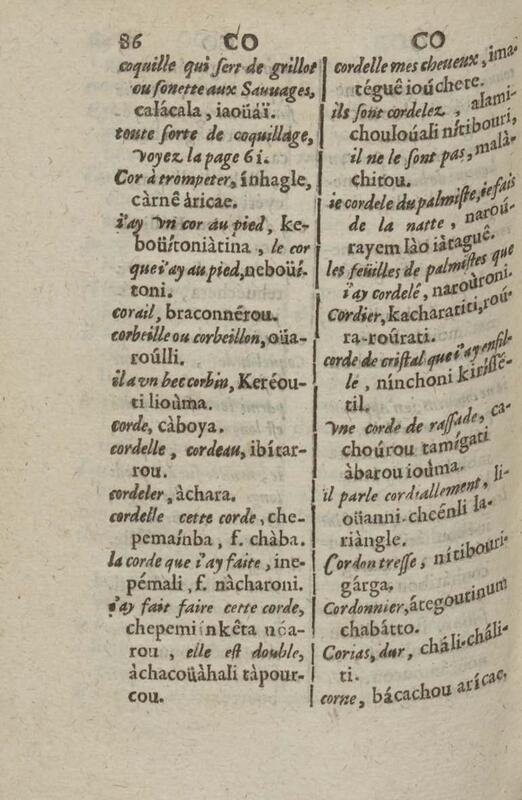 86 CO
coquille qui sert de grillot
ou sonette aux Sauuages,
calácala, iaoüáï.
toute sorte de coquillage,
Voyez la page 61.
Cor à trompeter, ínhagle,
càrnê àricae.
i'ay vn cor au pied, ke-
boüítoniàtina, le cor
que i'ay au pied, neboüí-
toni.
corail, braconnérou.
corbeille ou corbeillon, oüa-
roúlli.
il a vn bec corbin, Keréou-
ti lioùma.
corde, càboya.
cordelle, cordeau, ibítar-
rou.
cordeler, àchara.
cordelle cette corde, che-
pemaínba, f. chàba.
la corde que i'ay faite, ine-
pémali, f. nàcharoni.
i'ay fait faire cette corde,
chepemi ínkêta nóa-
rou, elle est double,
àchacoüàhali tàpour-
cou.
CO
cordelle mes cheueux, ima-
téguê ioúchete.
ils sont cordelez, alami-
chouloúali nítibouri,
il ne le sont pas, malà-
chitou.
ie cordele du palmiste, ie fais
de la natte, naroú-
rayem lào iàtaguê.
les feüilles de palmistes que
i'ay cordelé, naroùroni.
Cordier, kacharatiti, roú-
ra-roúrati.
corde de cristal que i'ay enfil-
lé, nínchoni kirissé-
til.
Vne corde de rassade, ca-
choúrou tamígati
àbarou ioùma.
il parle cordiallement, li-
oüanni-chcénli la-
riàngle.
Cordon tresse, nítibouri-
gárga.
Cordonnier, átegoutinum
chabátto.
Corias, dur, cháli-cháli-
ti.
corne, bácachou arícae,